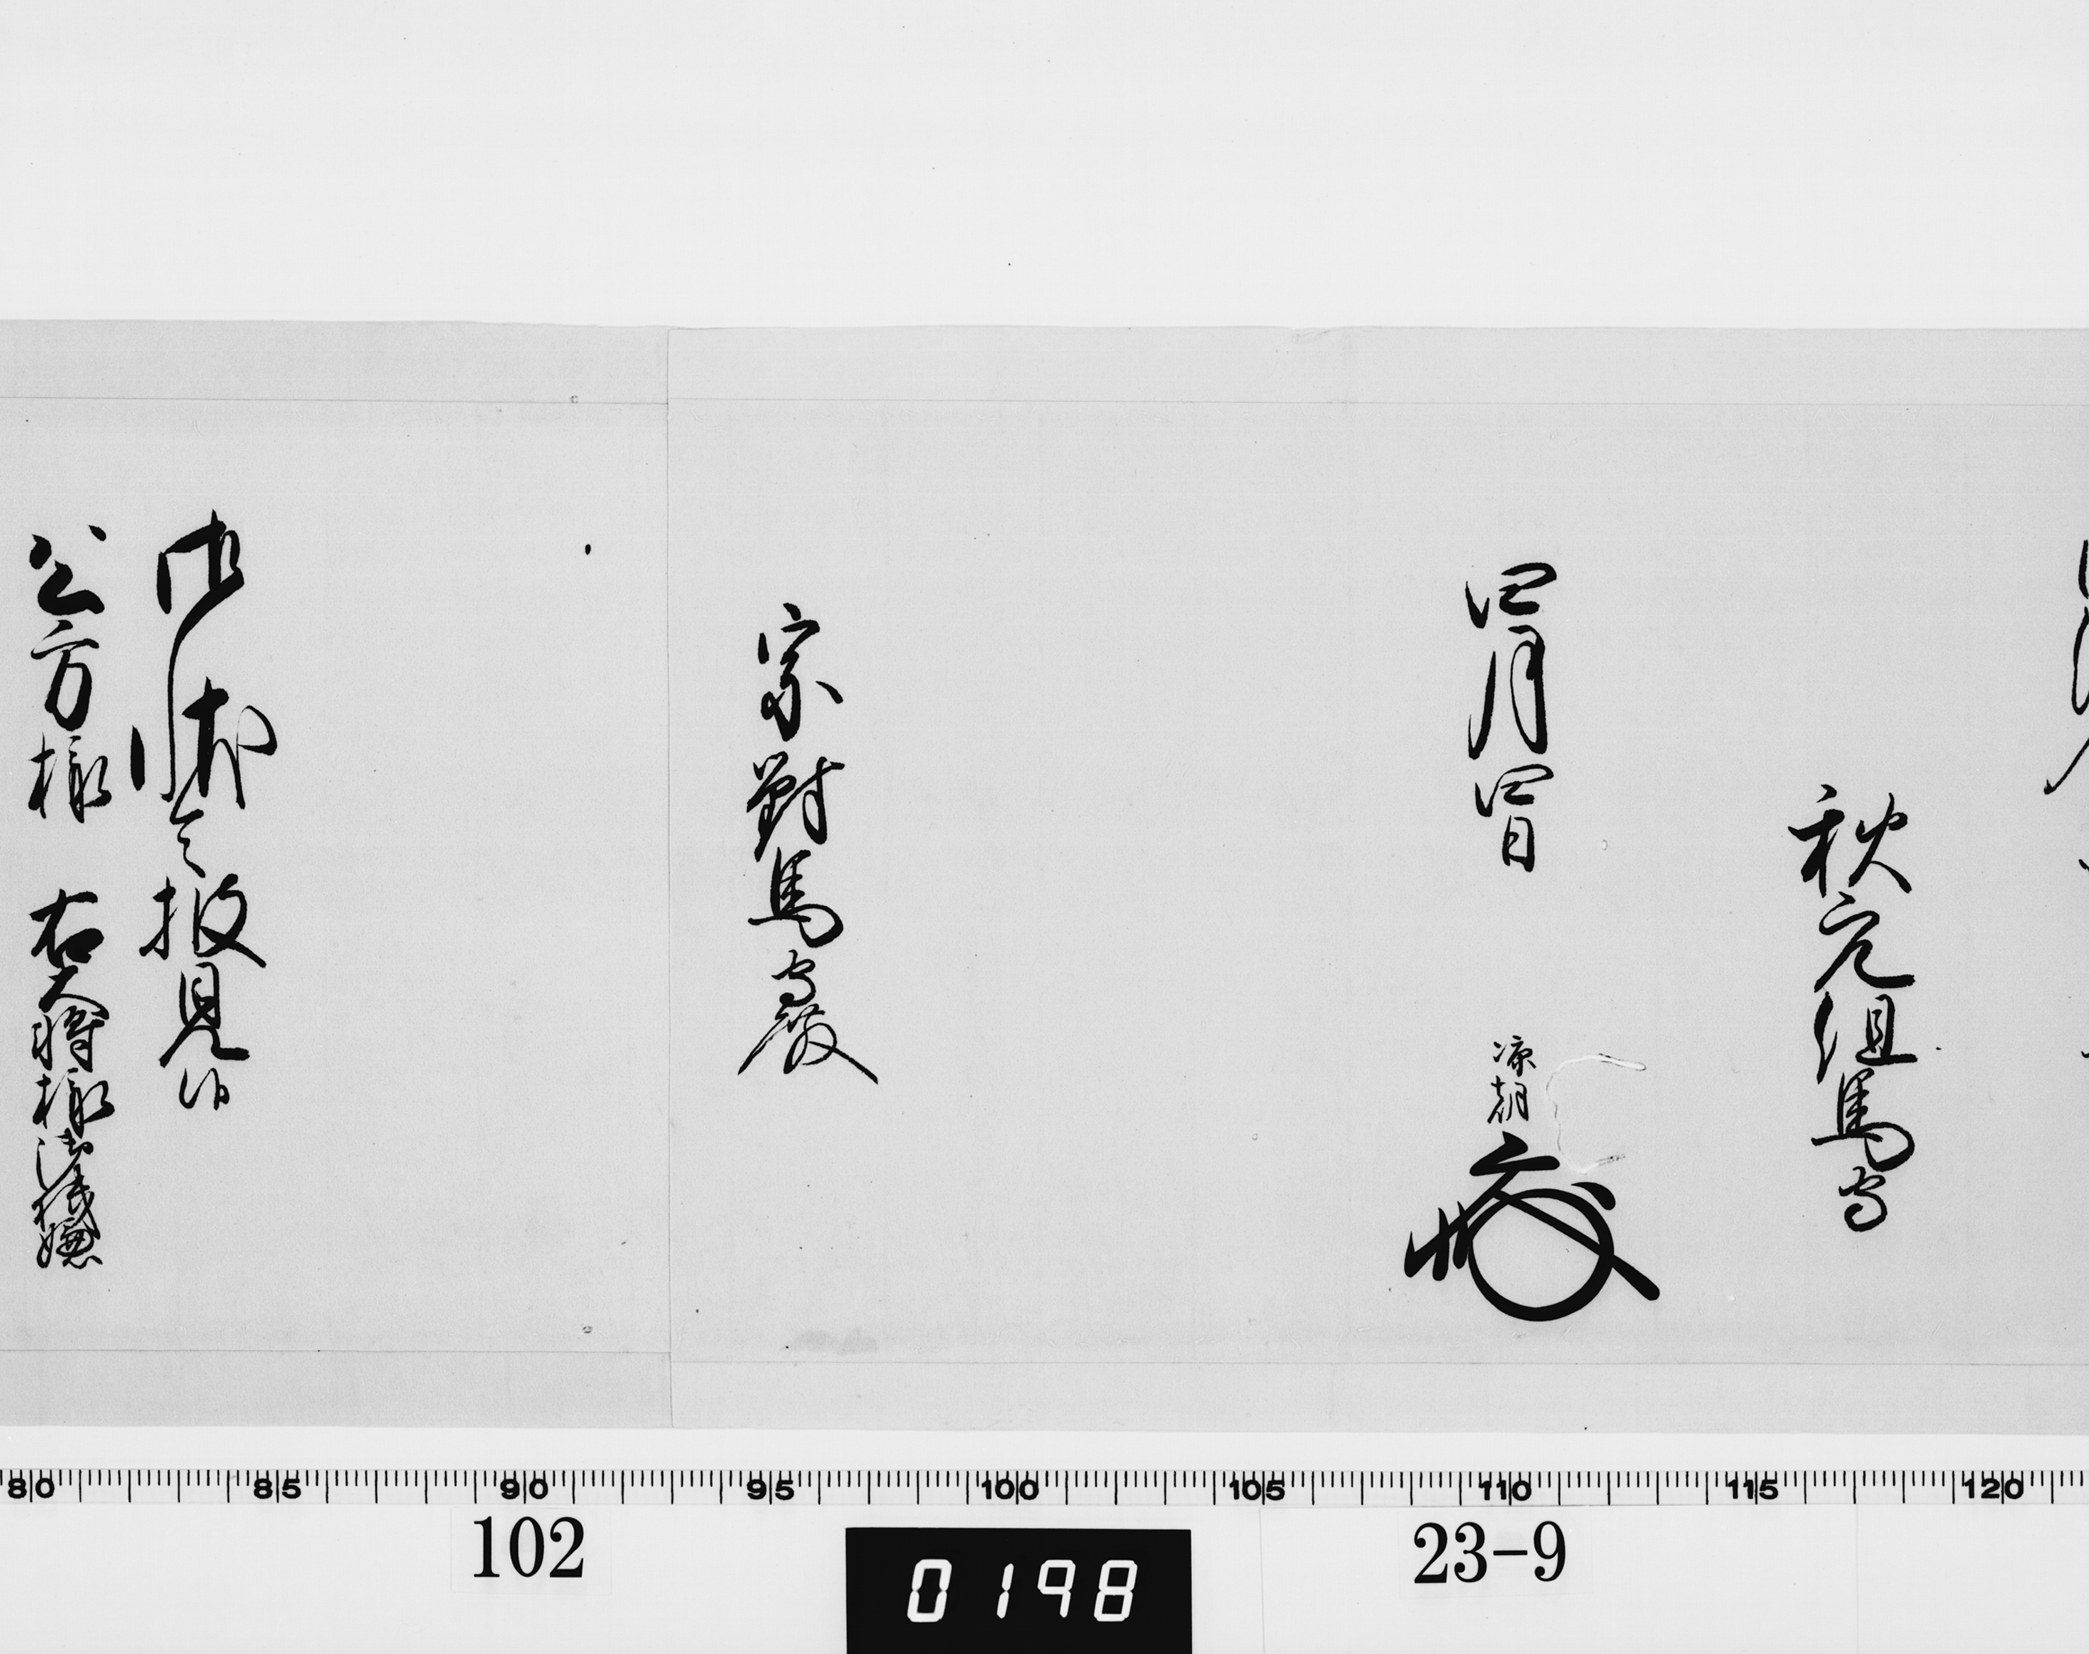 秋元但馬守
四月四日
凉朝
宗對馬守殿
御状令披見候
公方様 右大将様御機嫌
80 85 90 95 100 105 110 115 120
102
0198
23-9